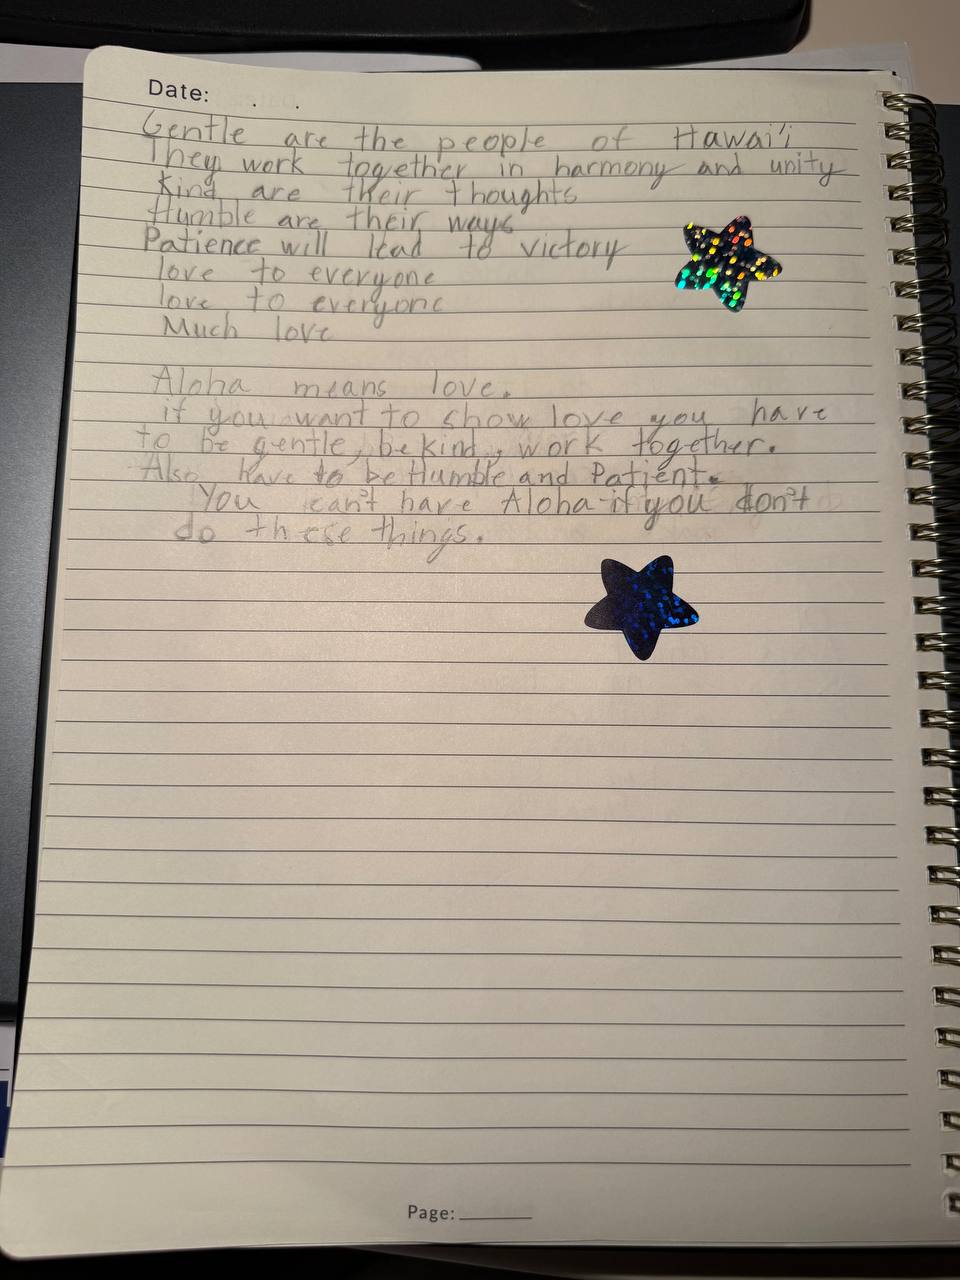 Date: . .
Gentle are the people of Hawai'i
They work together in harmony and unity
Kind are their thoughts
Humble are their ways
Patience will lead to victory
love to everyone
love to everyone
Much love
Aloha means love.
if you want to show love you have
to be gentle, be kind, work together.
Also have to be Humble and Patient.
You can't have Aloha if you don't
do these things.
Page: